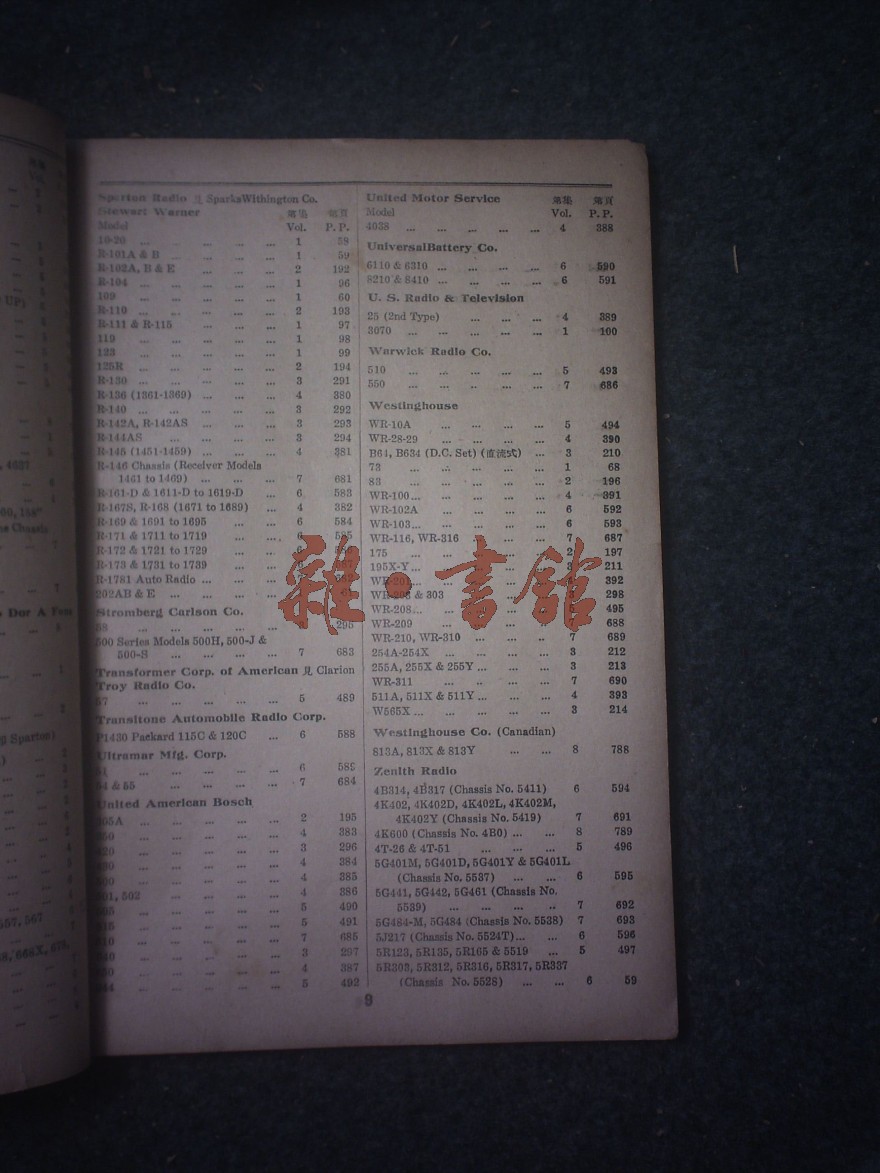 Sparton Radio 見 SparksWithington Co.
Stewart Warner 第集 第頁
Model Vol. P. P.
10-20 ... ... ... ... 1 58
R-101A & B ... ... ... 1 59
R-102A, B & E ... ... ... 2 192
R-104 ... ... ... ... 1 96
109 ... ... ... ... 1 60
R-110 ... ... ... ... 2 193
R-111 & R-115 ... ... ... 1 97
119 ... ... ... ... 1 98
123 ... ... ... ... 1 99
125R ... ... ... ... 2 194
R-130 ... ... ... ... 3 291
R-136 (1361-1369) ... ... ... 4 380
R-140 ... ... ... ... ... 3 292
R-142A, R-142AS ... ... ... 3 293
R-144AS ... ... ... 3 294
R-145 (1451-1459) ... ... ... 4 381
R-146 Chassis (Receiver Models
1461 to 1469) ... ... ... 7 681
R-161-D & 1611-D to 1619-D ... 6 583
R-167S, R-168 (1671 to 1689) ... 4 382
R-169 & 1691 to 1695 ... ... 6 584
R-171 & 1711 to 1719 ... ... 6 585
R-172 & 1721 to 1729 ... ... 6
R-173 & 1731 to 1739 ... ...
R-1781 Auto Radio ... ... ...
202AB & E ... ... ... ...
Stromberg Carlson Co.
58 ... ... ... ... ... 295
500 Series Models 500H, 500-J &
500-S ... ... ... ... 7 683
Transformer Corp. of American 見 Clarion
Troy Radio Co.
67 ... ... ... ... ... 5 489
Transitone Automobile Radio Corp.
P1430 Packard 115C & 120C ... 6 588
Ultramar Mfg. Corp.
51 ... ... ... ... ... 6 589
54 & 55 ... ... ... ... 7 684
United American Bosch
205A ... ... ... ... ... 2 195
... ... ... ... ... 4 383
... ... ... ... ... 3 296
... ... ... ... ... 4 384
... ... ... ... ... 4 385
501, 502 ... ... ... ... 4 386
... ... ... ... ... 5 490
... ... ... ... ... 5 491
... ... ... ... ... 7 685
... ... ... ... ... 3 297
... ... ... ... ... 4 387
... ... ... ... ... 5 492
United Motor Service 第集 第頁
Model Vol. P. P.
4038 ... ... ... ... ... 4 388
UniversalBattery Co.
6110 & 6310 ... ... ... ... 6 590
8210 & 8410 ... ... ... ... 6 591
U. S. Radio & Television
25 (2nd Type) ... ... ... 4 389
3070 ... ... ... ... ... 1 100
Warwick Radio Co.
510 ... ... ... ... ... 5 493
550 ... ... ... ... ... 7 686
Westinghouse
WR-10A ... ... ... ... 5 494
WR-28-29 ... ... ... ... 4 390
B64, B634 (D.C. Set) (直流式) ... 3 210
73 ... ... ... ... ... 1 68
83 ... ... ... ... ... 2 196
WR-100... ... ... ... ... 4 391
WR-102A ... ... ... ... 6 592
WR-103... ... ... ... ... 6 593
WR-116, WR-316 ... ... 7 687
175 ... ... ... ... ... 2 197
195X-Y... ... ... ... ... 3 211
WR-201... ... ... ... ... 392
WR-203 & 303 ... ... ... 298
WR-208... ... ... ... ... 495
WR-209 ... ... ... ... 7 688
WR-210, WR-310 ... ... ... 7 689
254A-254X ... ... ... ... 3 212
255A, 255X & 255Y ... ... ... 3 213
WR-311 ... ... ... ... 7 690
511A, 511X & 511Y ... ... ... 4 393
W565X ... ... ... ... ... 3 214
Westinghouse Co. (Canadian)
813A, 813X & 813Y ... ... 8 788
Zenith Radio
4B314, 4B317 (Chassis No. 5411) 6 594
4K402, 4K402D, 4K402L, 4K402M,
4K402Y (Chassis No. 5419) 7 691
4K600 (Chassis No. 4B0) ... ... 8 789
4T-26 & 4T-51 ... ... ... 5 496
5G401M, 5G401D, 5G401Y & 5G401L
(Chassis No. 5537) ... ... 6 595
5G441, 5G442, 5G461 (Chassis No.
5539) ... ... ... ... 7 692
5G484-M, 5G484 (Chassis No. 5538) 7 693
5J217 (Chassis No. 5524T)... ... 6 596
5R123, 5R135, 5R165 & 5519 ... 5 497
5R303, 5R312, 5R316, 5R317, 5R337
(Chassis No. 5528) ... ... 6 59
9
雜·書館